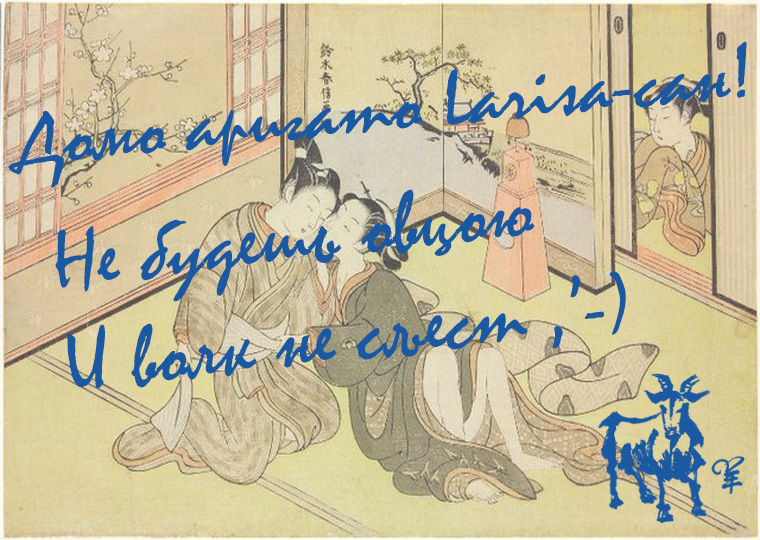 鈴木春信画
Домо аригато Larisa-сан!
Не будешь овцою
И волк не съест ,'-)
羊